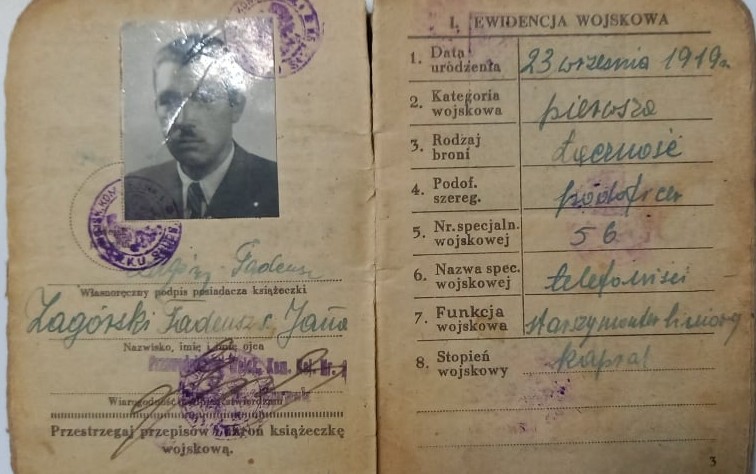 Tadeusz
Własnoręczny podpis posiadacza książeczki
Zagórski Tadeusz s. Jana
Nazwisko, imię i imię ojca
Kom. Rej. Nr.
Wiarogodność
Przestrzegaj przepisów i chroń książeczkę
wojskową.
I. EWIDENCJA WOJSKOWA
1. Data urodzenia 23 września 1919 r.
2. Kategoria wojskowa pierwsza
3. Rodzaj broni Łączność
4. Podof. szereg. podoficer
5. Nr. specjaln. wojskowej 56
6. Nazwa spec. wojskowej telefoniści
7. Funkcja wojskowa starszy monter liniowy
8. Stopień wojskowy kapral
3